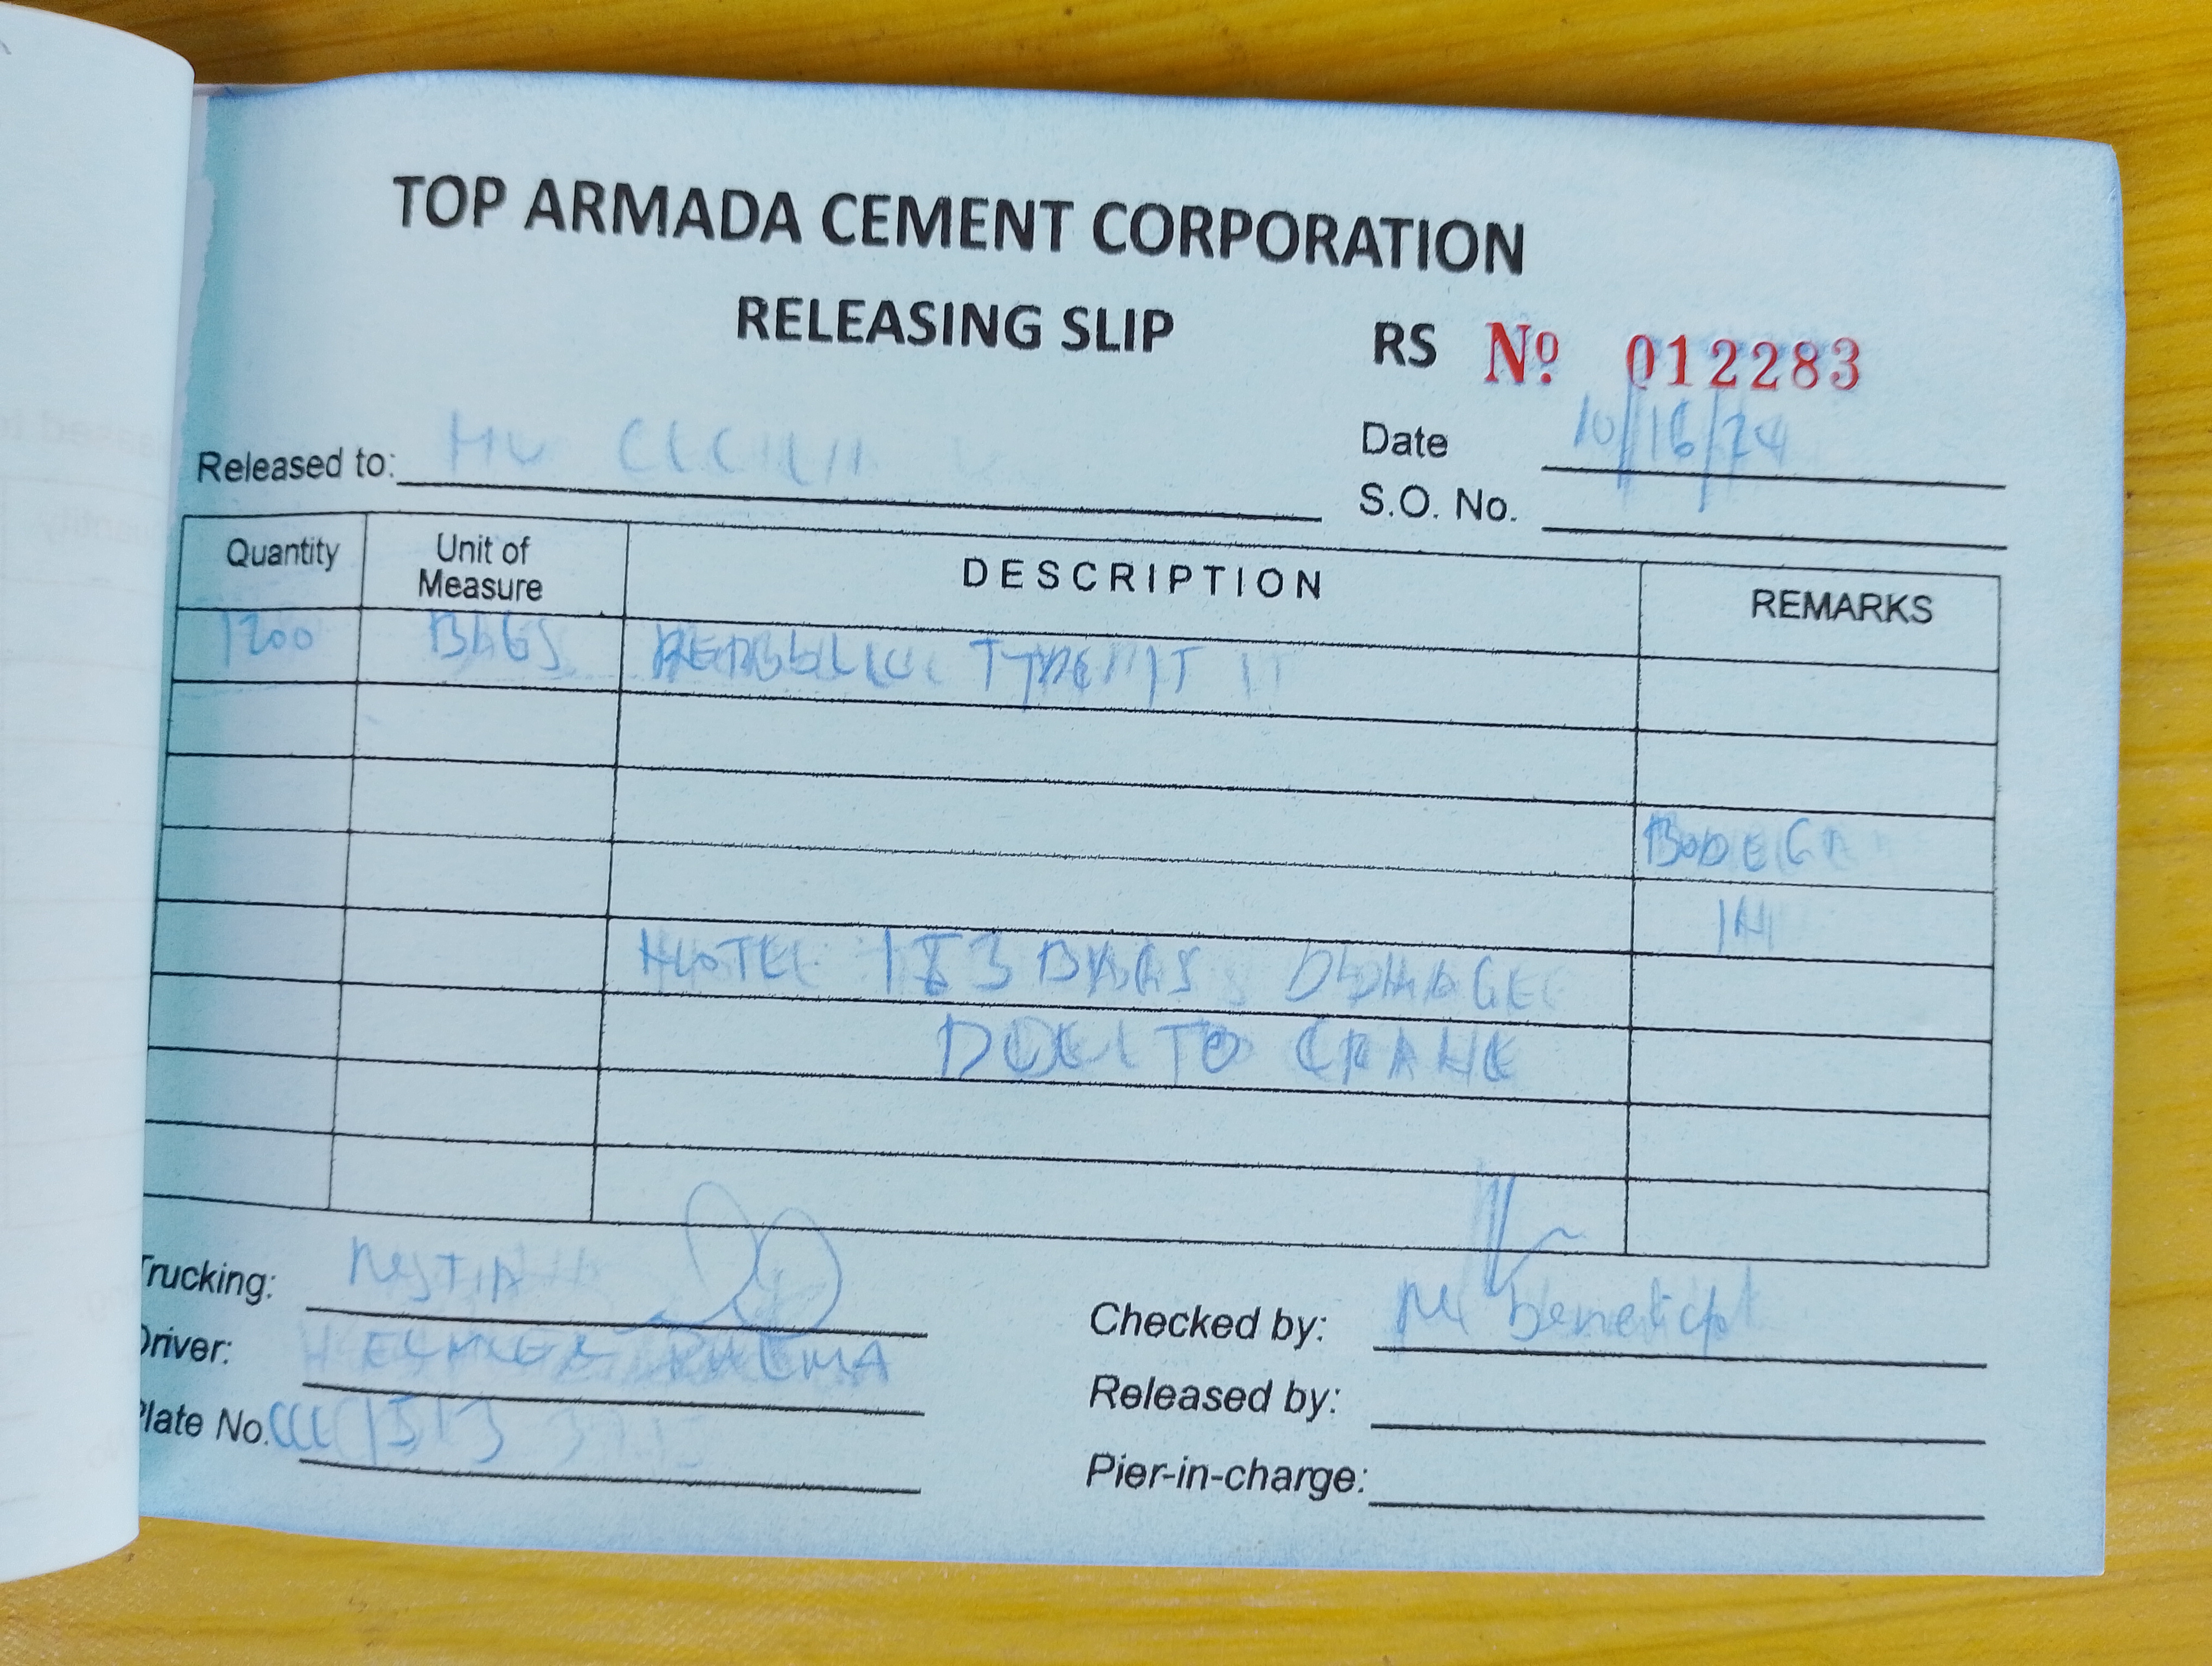 TOP ARMADA CEMENT CORPORATION
RELEASING SLIP
RS Nº 012283
Released to:
Date 10/16/24
S.O. No.
Quantity Unit of Measure DESCRIPTION REMARKS
1200 BAGS REPUBLIC TYPE 1T
BODEGA
IN
BAGS DAMAGE
DUE TO CRANE
Trucking:
Driver: PALMA
Plate No.
Checked by: benedict
Released by:
Pier-in-charge: